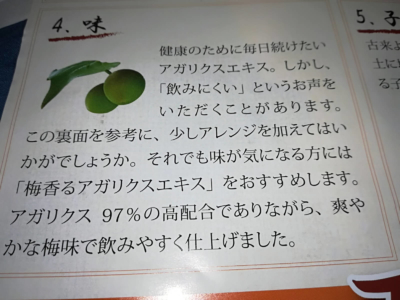 4、味
健康のために毎日続けたい
アガリクスエキス。しかし、
「飲みにくい」というお声を
いただくことがあります。
この裏面を参考に、少しアレンジを加えてはい
かがでしょうか。それでも味が気になる方には
「梅香るアガリクスエキス」をおすすめします。
アガリクス 97%の高配合でありながら、爽や
かな梅味で飲みやすく仕上げました。
5、子
古米よ
土に
る子